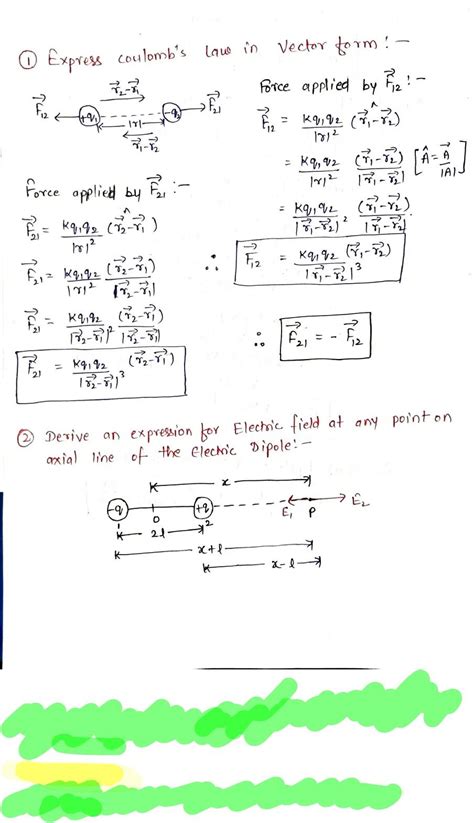 ① Express coulomb's law in vector form :-
r⃗₂-r⃗₁
F⃗₁₂ +q₁ -q₂ F⃗₂₁
|r|
r⃗₁-r⃗₂
Force applied by F⃗₁₂ :-
F⃗₁₂ = kq₁q₂/|r|² (r⃗₁-r⃗₂)^
= kq₁q₂/|r|² (r⃗₁-r⃗₂)/|r⃗₁-r⃗₂| [Â = A⃗/|A|]
= kq₁q₂/|r⃗₁-r⃗₂|² (r⃗₁-r⃗₂)/|r⃗₁-r⃗₂|
∴ F⃗₁₂ = kq₁q₂ (r⃗₁-r⃗₂)/|r⃗₁-r⃗₂|³
Force applied by F⃗₂₁ :-
F⃗₂₁ = kq₁q₂/|r|² (r⃗₂-r⃗₁)^
F⃗₂₁ = kq₁q₂/|r|² (r⃗₂-r⃗₁)/|r⃗₂-r⃗₁|
F⃗₂₁ = kq₁q₂/|r⃗₂-r⃗₁|² (r⃗₂-r⃗₁)/|r⃗₂-r⃗₁|
F⃗₂₁ = kq₁q₂/|r⃗₂-r⃗₁|³ (r⃗₂-r⃗₁)
∴ F⃗₂₁ = - F⃗₁₂
② Derive an expression for Electric field at any point on
axial line of the Electric Dipole :-
x
-q +q E₁ P E⃗₂
1 O 2
2l
x+l
x-l